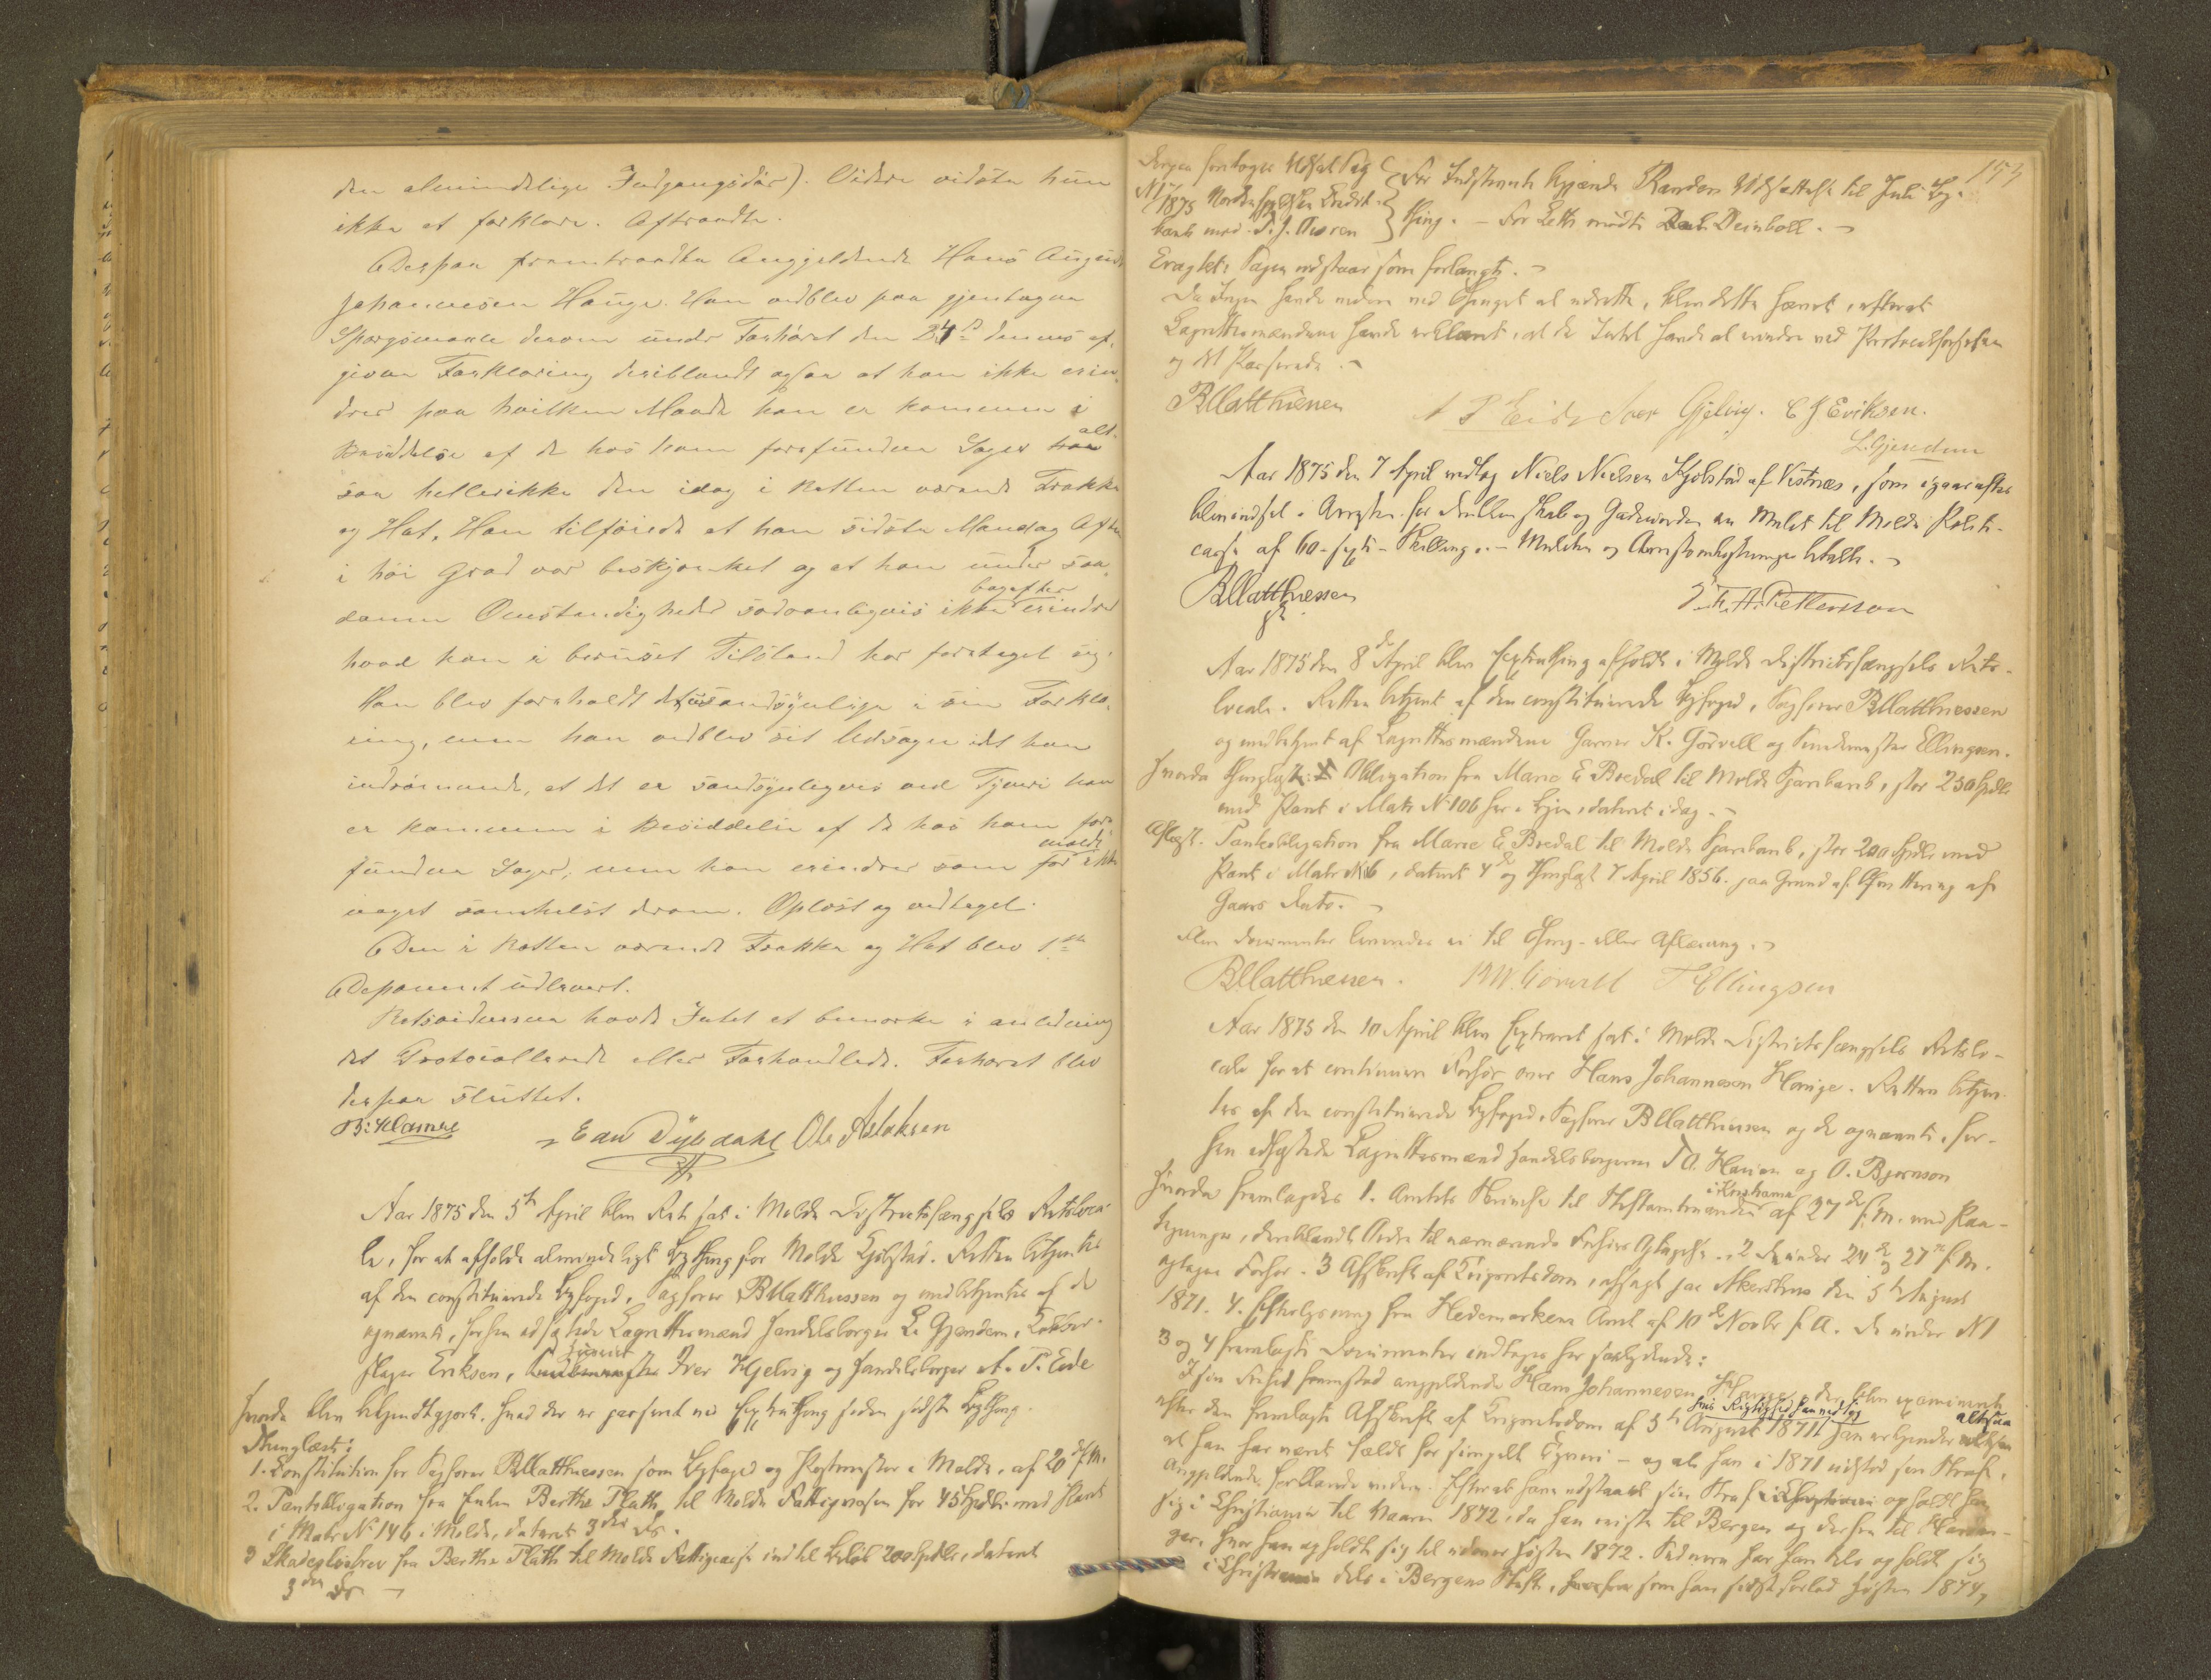 den almindelige Indgangsdør). Videre vidste hun
ikke at forklare. Aftraadte.
Derpaa fremtraadte Angjeldende Hans August
Johannesen Hauge. Han vedblev paa gjentagne
Spørgsmaale derom under Forhøret den 24de dennes af-
given Forklaring deriblandt ogsaa at han ikke erin-
drer paa hvilken Maade han er kommen i
Besiddelse af de hos ham forefundne Sager alt-
saa hellerikke den idag i Retten værende Frakke
og Hat. Han tilføiede at han sidste Mandag Aften
i høi Grad var beskjænket og at han under saa-
danne Omstændigheder sædvanligvis ikke bagefter erindrer
hvad han i beruset Tilstand har foretaget sig.
Han blev foreholdt det usandsynlige i sin Forkla-
ring, men han vedblev sit Udsagn idet han
indrømmede, at det er sandsynligvis ved Tyveri han
er kommen i Besiddelse af de hos ham fore-
fundne Sager, men han erindrer som før meldt ikke
noget somhelst derom. Oplæst og vedtaget.
Den i Retten værende Frakke og Hat blev 1ste
Deponent udleveret.
Retsvidnerne havde Intet at bemærke i anledning
det Protocollerede eller Forhandlede. Forhøret blev
derpaa sluttet.
Edv Dybdahl Ole Aslaksen
Aar 1875 den 5te April blev Ret sat i Molde Districtsfængsels Retsloca-
le, for at afholde almindeligt Bything for Molde Kjøbstad. Retten betjentes
af den constituerede Byfoged, Sagfører BMatthiessen og medbetjentes af de
opnævnte, forhen edfæstede Lagrettesmænd Handelsborger L. Gjendem, Kobber-
slager Eriksen, Iver Hjelvig og Handelsborger A. P. Eide
Hvorda blev bekjendtgjort, hvad der er passeret ved Extrathing siden sidste Bything.
Thinglæst:
1. Constitution for Sagfører BMatthiessen som Byfoged og Postmester i Molde, af 20 f. M.
2. Pantobligation fra Enken Berthe Plath til Molde Fattigvæsen for 45 Spdlr. med Pant
i Matr No 146 i Molde, dateret 3die ds.
3 Skadesløsbrev fra Berthe Plath til Molde Fattigcasse indtil Beløb 200 Spdlr, dateret
3die ds
153
Derpaa foretoges Udsat Sag
No 1/1875 Nordenfjeldske Credit-
bank mod
For Indstevnte begjærede Randers Udsættelse til Juli By-
thing. - For mødte Deinboll.
Eragtet: Sagen udstaar som forlangt.
Da Ingen havde videre ved Thinget at udrette, blev dette hævet, efterat
Lagrettesmændene havde erklæret, at de Intet havde at erindre ved Protocolførselen
og det Passerede.
BMatthiessen A P Eide Iver Gjelvig. C J Eriksen.
L. Gjendem
Aar 1875 den 7 April vedtog Niels Nielsen Kjolstad af Vestnæs, som igaaraftes
blev indsat i Arresten for Drukkenskab og Gadeuorden en Mulct til Molde Politi-
casse af 60 - sexti - Skilling. - Mulcten og Arrestomkostninger betalt.
BMatthiessen Pettersson
Aar 1875 den 8de April blev Extrathing afholdt i Molde Districtsfængsels Rets-
locale. Retten betjent af den constituerede Byfoged, Sagfører BMatthiessen
og medbetjent af Lagrettesmændene Garver K. Gørvell og Ellingsen.
Hvorda thinglæst: Obligation fra Marie E Bredal til Molde Sparebank, stor 250 Spdlr
med Pant i Matr No 106 her i Byen, dateret idag.
Aflæst. Pantobligation fra Marie E Bredal til Molde Sparebank, stor 200 Spdlr med
Pant i Matr , dateret 4de og thinglæst 7 April 1856. paa Grund af Qvittering af
Gaars Dato.
Flere Documenter ei til Thing- eller Aflæsning.
BMatthiessen. Gørvell Ellingsen
Aar 1875 den 10 April blev Extraret sat i Molde Districtsfængsels Retslo-
cale for at continuere Forhør over Hans Johannesen Hauge. Retten betjen-
tes af den constituerede Byfoged, Sagfører BMatthiessen og de opnævnte, for-
hen edfæstede Lagrettesmænd Handelsborgerne Hansen og O. Bjørnson
Hvorda fremlagdes 1. Amtets Skrivelse til Stiftamtmanden i Kristiania af 27de f. M. med Paa-
tegninger, deriblandt Ordre til nærværende Forhørs Optagelse. 2 De under 24de og 27de f. M.
optagne Forhør. 3 Afskrift af Extraretsdom, afsagt paa Akershus den 5te August
1871. 4. fra Hedemarkens Amt af 10de Novbr f. A. De under No 1
3 og 4 fremlagte Documenter indtages her saalydende:
I sin Frihed fremstod angjeldende Hans Johannesen Hauge, der blev examineret
efter den fremlagte Afskrift af Extraretsdom af 5te August 1871 hvis Rigtighed han vedtog Han erkjender altsaa
at han har været fældt for simpelt Tyveri - og at han i 1871 udstod sin Straf.
Angjeldende forklarede videre: Efterat have udstaaet sin Straf opholdt han
sig i Christiania til Vaaren 1872, da han reiste til Bergen og derfra til Hardan-
ger, hvor han opholdt sig til udover Høsten 1872. Siden har han dels opholdt sig
i Christiania dels i Bergens Stift, som han sidst forlod Høsten 1874,